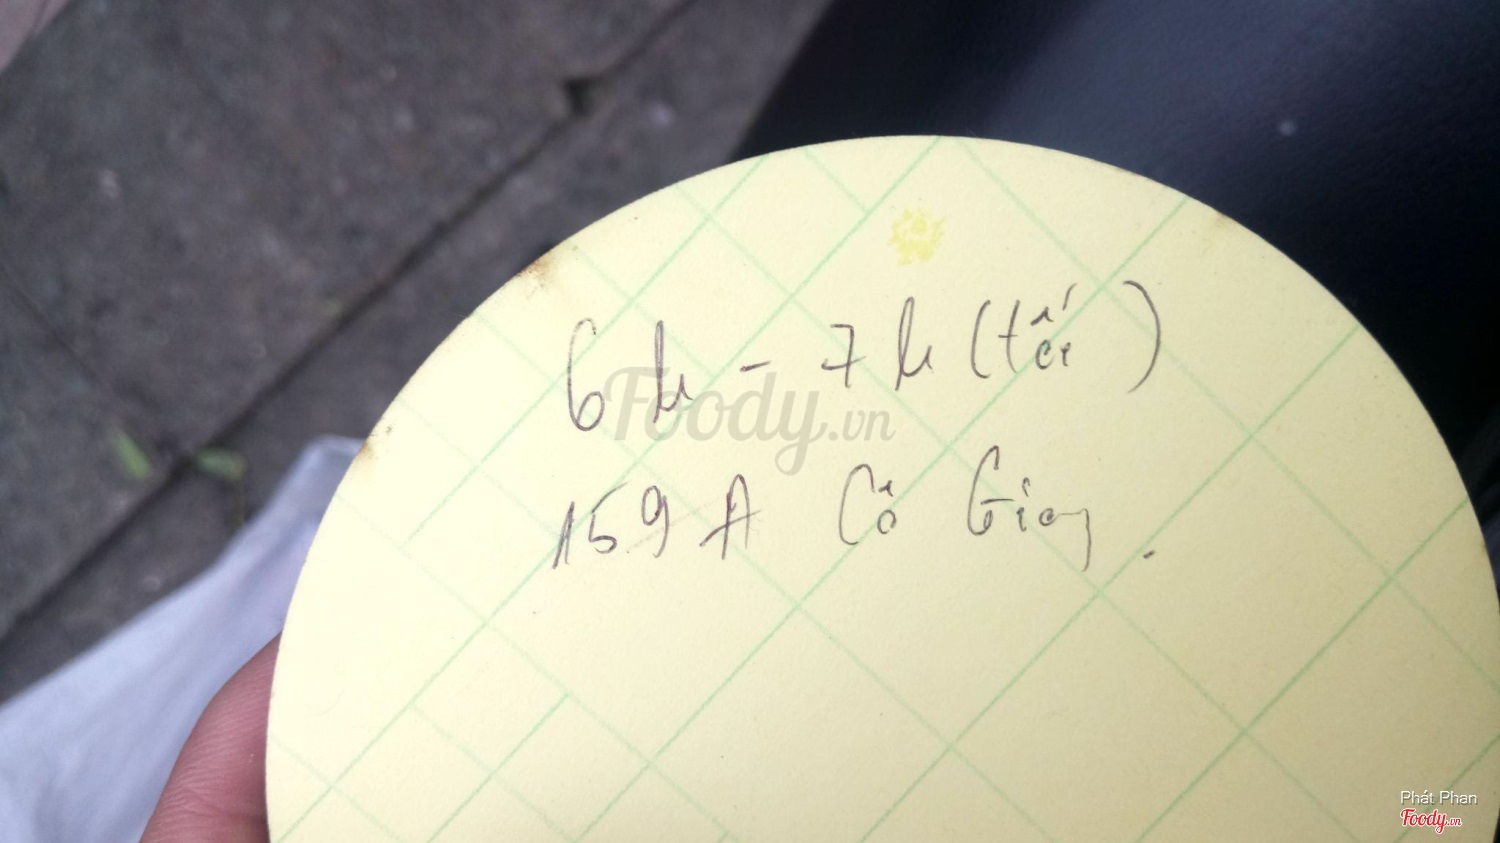 6h - 7h (tối)
159 A Cô Giang.
Foody.vn
Phát Phan
Foody.vn